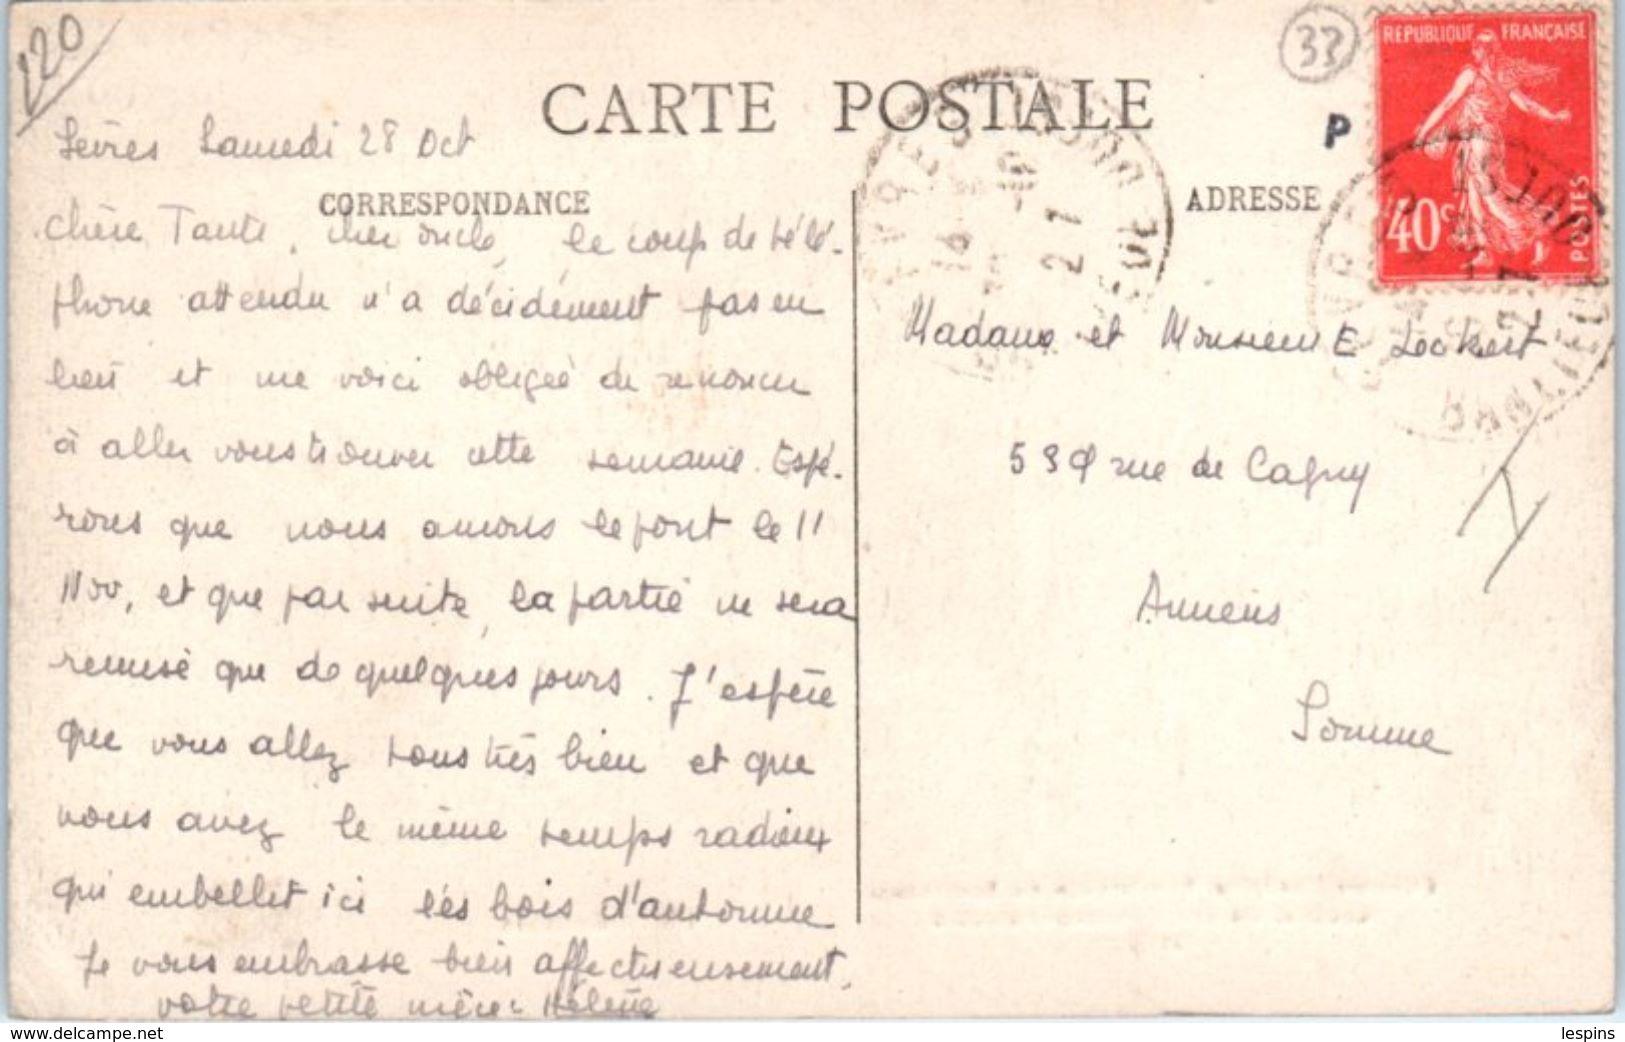 120
33
P
CARTE POSTALE
RÉPUBLIQUE FRANÇAISE
40c
POSTES
Sèvres Samedi 28 Oct
CORRESPONDANCE
ADRESSE
Chère Tante, cher oncle, le coup de télé-
phone attendu n'a décidément pas eu
lieu et me voici obligée de renoncer
à aller vous trouver cette semaine. Espé-
rons que nous aurons le pont le 11
Nov, et que par suite, la partie ne sera
remise que de quelques jours. J'espère
que vous allez tous très bien et que
vous avez le même temps radieux
qui embellit ici les bois d'automne
Je vous embrasse bien affectueusement,
votre petite nièce Hélène
Madame et Monsieur E Lockert
rue de Cagny
Amiens
Somme
lespins